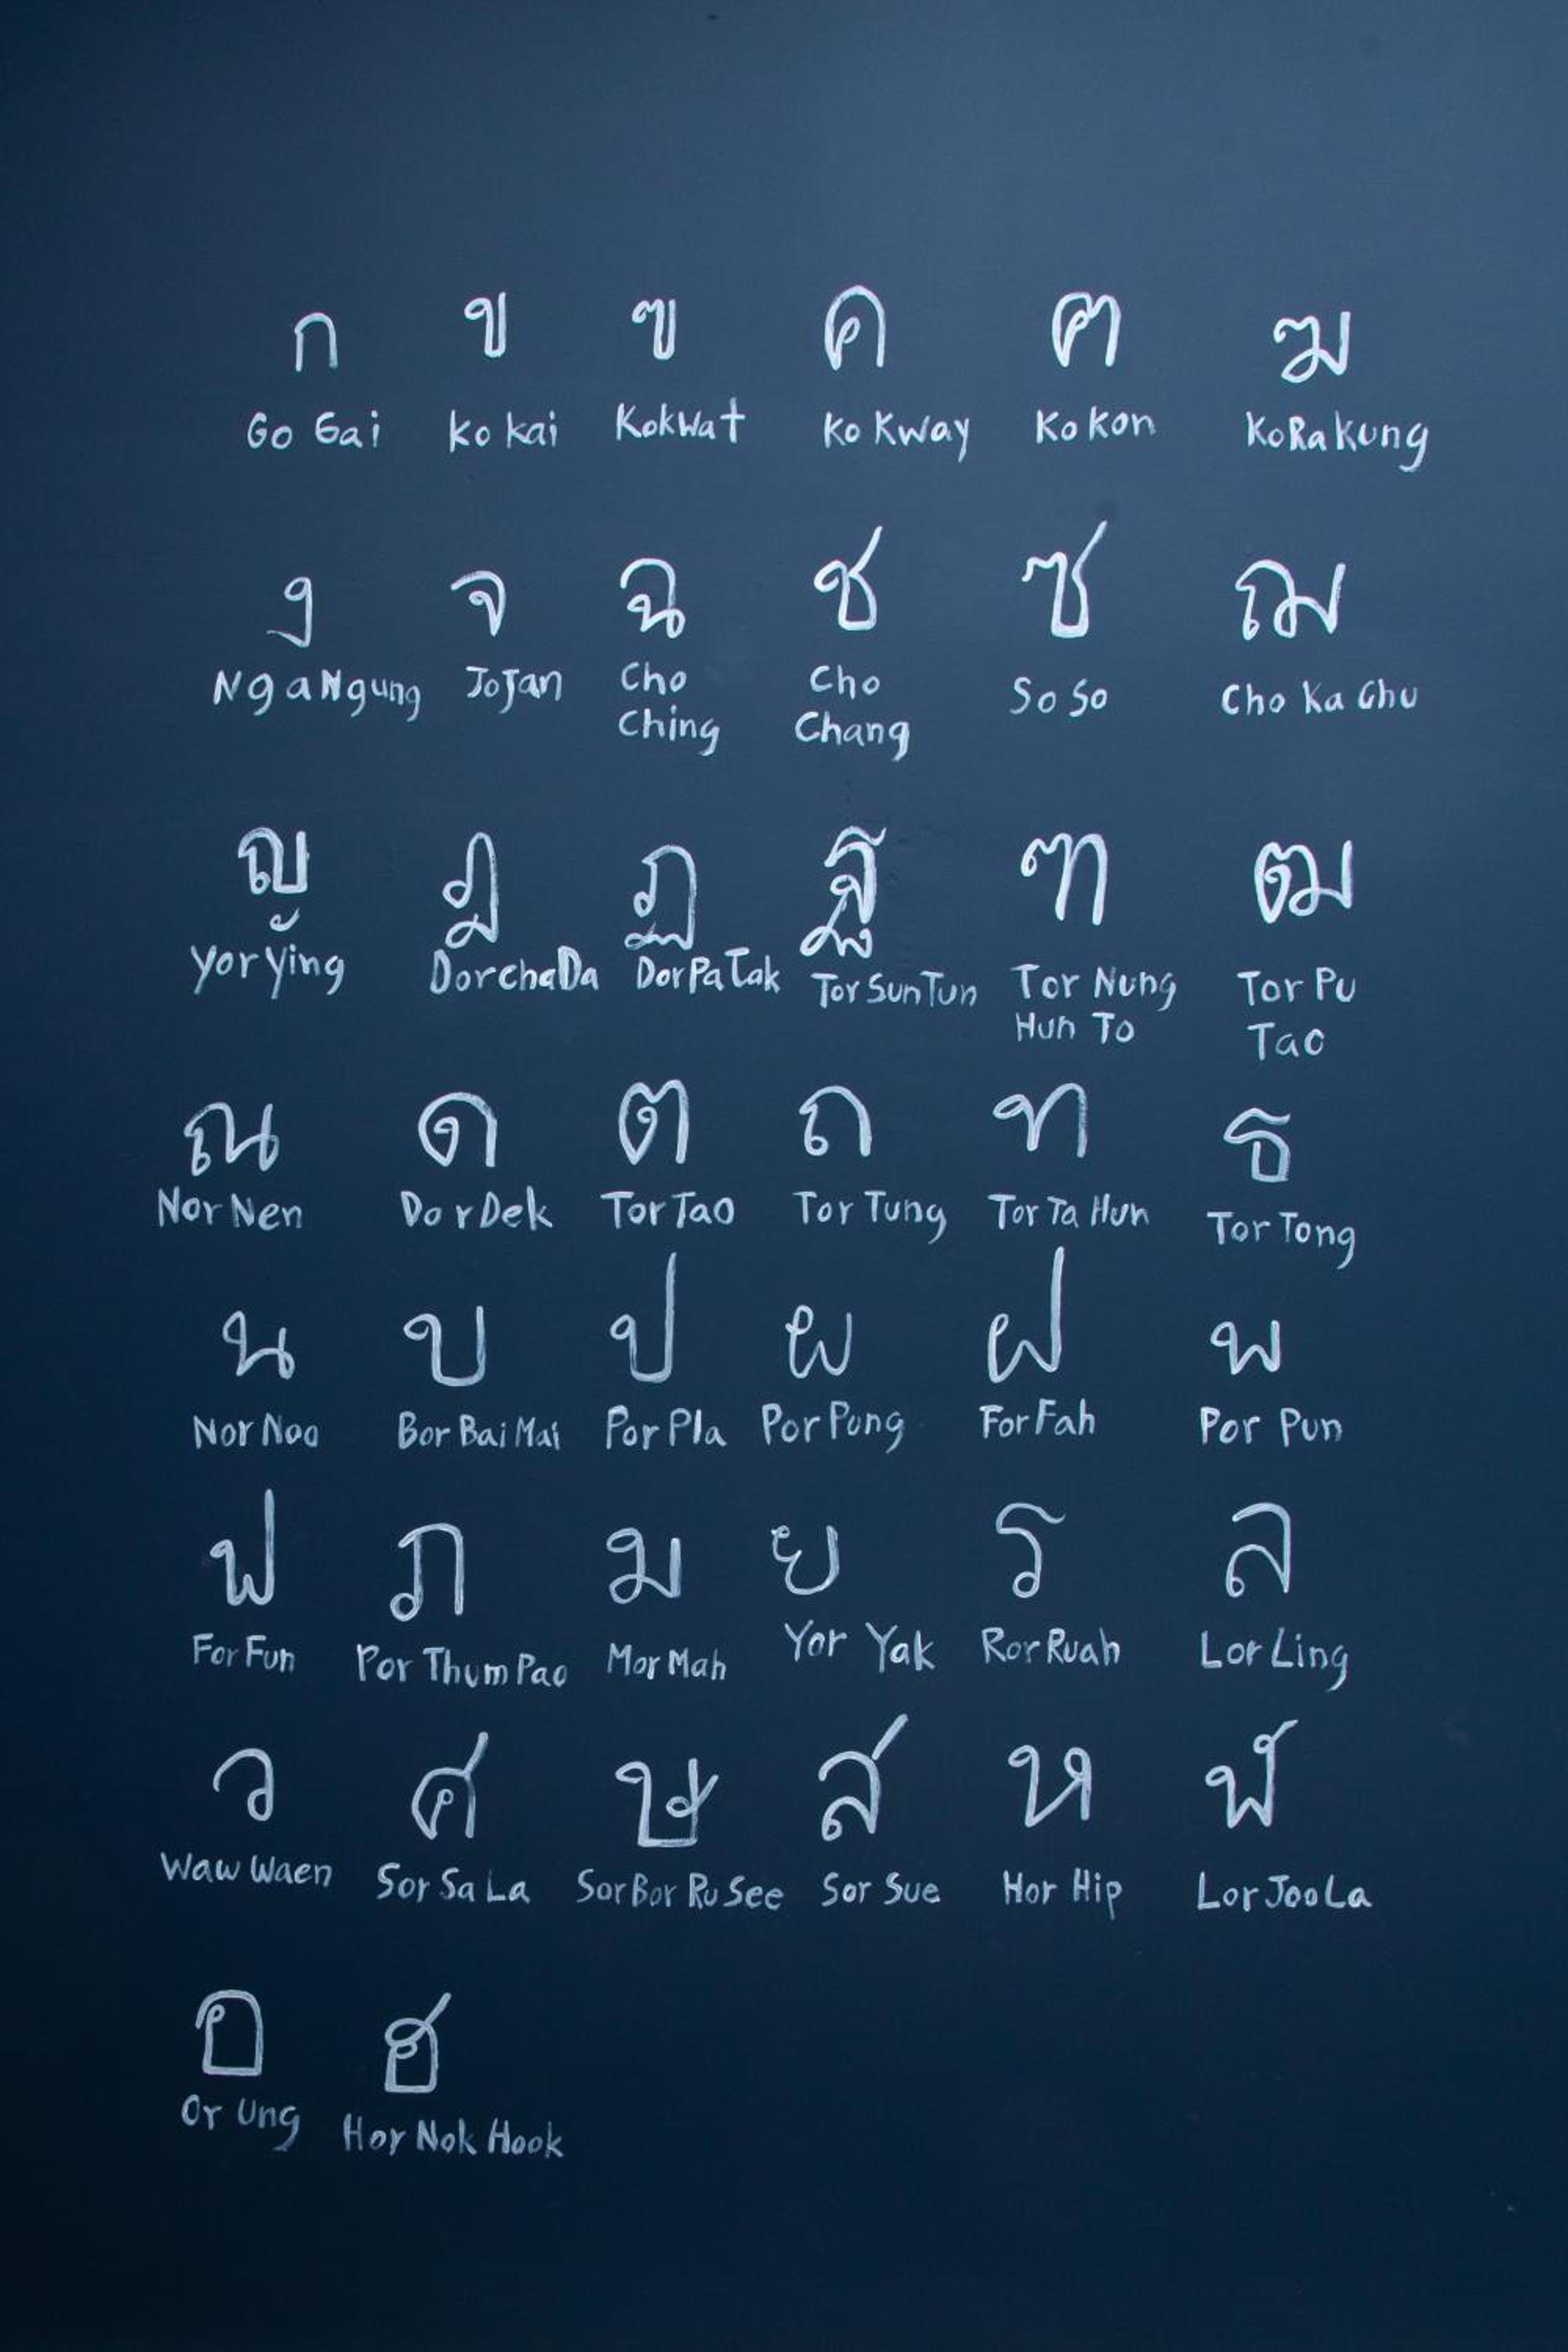 ก ข ฃ ค ฅ ฆ
Go Gai ko kai KokWat Ko Kway Ko Kon KoRa kung
ง จ ฉ ช ซ ฌ
NgaNgung JoJan Cho Cho So So Cho Ka Chu
Ching Chang
ญ ฎ ฏ ฐ ฑ ฒ
Yor Ying DorchaDa DorPaTak Tor SunTun Tor Nung Tor Pu
Hun To Tao
ณ ด ต ถ ท ธ
Nor Nen Dor Dek Tor Tao Tor Tung Tor Ta Hun Tor Tong
น บ ป ผ ฝ พ
Nor Noo Bor Bai Mai Por Pla Por Pung For Fah Por Pun
ฟ ภ ม ย ร ล
For Fun Por Thum Pao Mor Mah Yor Yak Ror Ruah Lor Ling
ว ศ ษ ส ห ฬ
Waw Waen Sor Sa La Sor Bor Ru See Sor Sue Hor Hip Lor Joo La
อ ฮ
Or Ung Hor Nok Hook